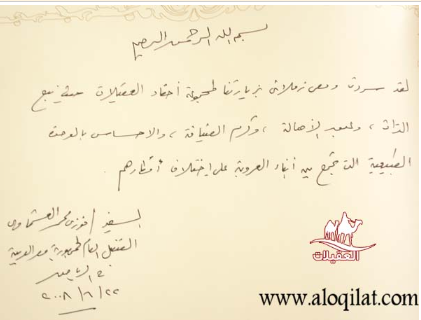 بسم الله الرحمن الرحيم
لقد سررت ومعى زملائى بزيارتنا لمجموعة أحفاد العقيلات حيث ينبع
التراث ، وعبق الأصالة ، وكرم الضيافة ، والاحساس بالوحدة
الطبيعية التى تجمع بين أبناء العروبة على اختلاف أقطارهم .
السفير / فوزى محمد العشماوى
القنصل العام لجمهورية مصر العربية
فى الرياض
٢٠٠٨/٦/٢٢
العقيلات
www.aloqilat.com